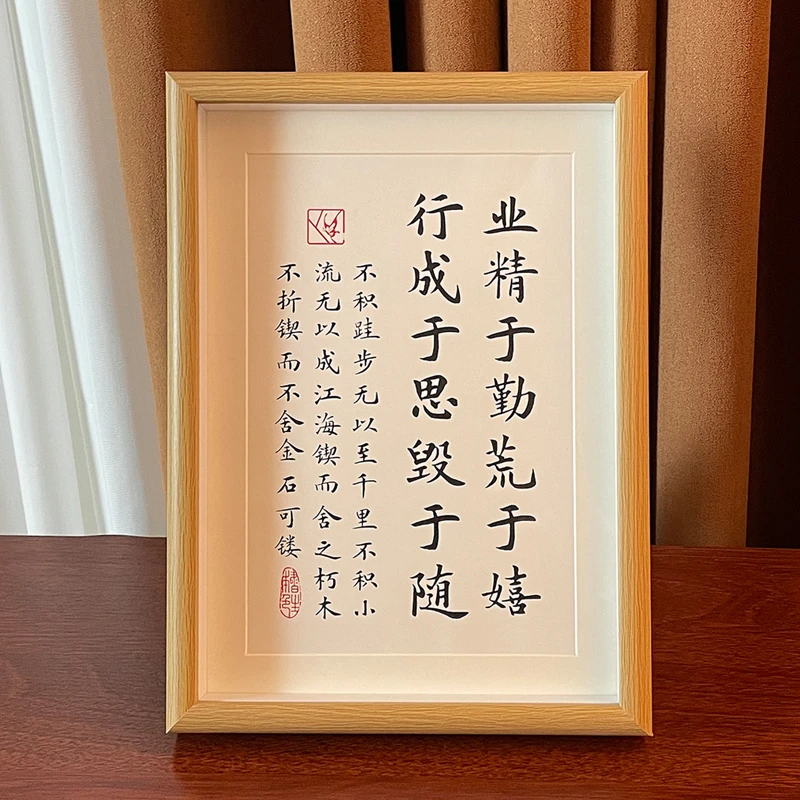 业精于勤荒于嬉
行成于思毁于随
不积跬步无以至千里不积小
流无以成江海锲而舍之朽木
不折锲而不舍金石可镂